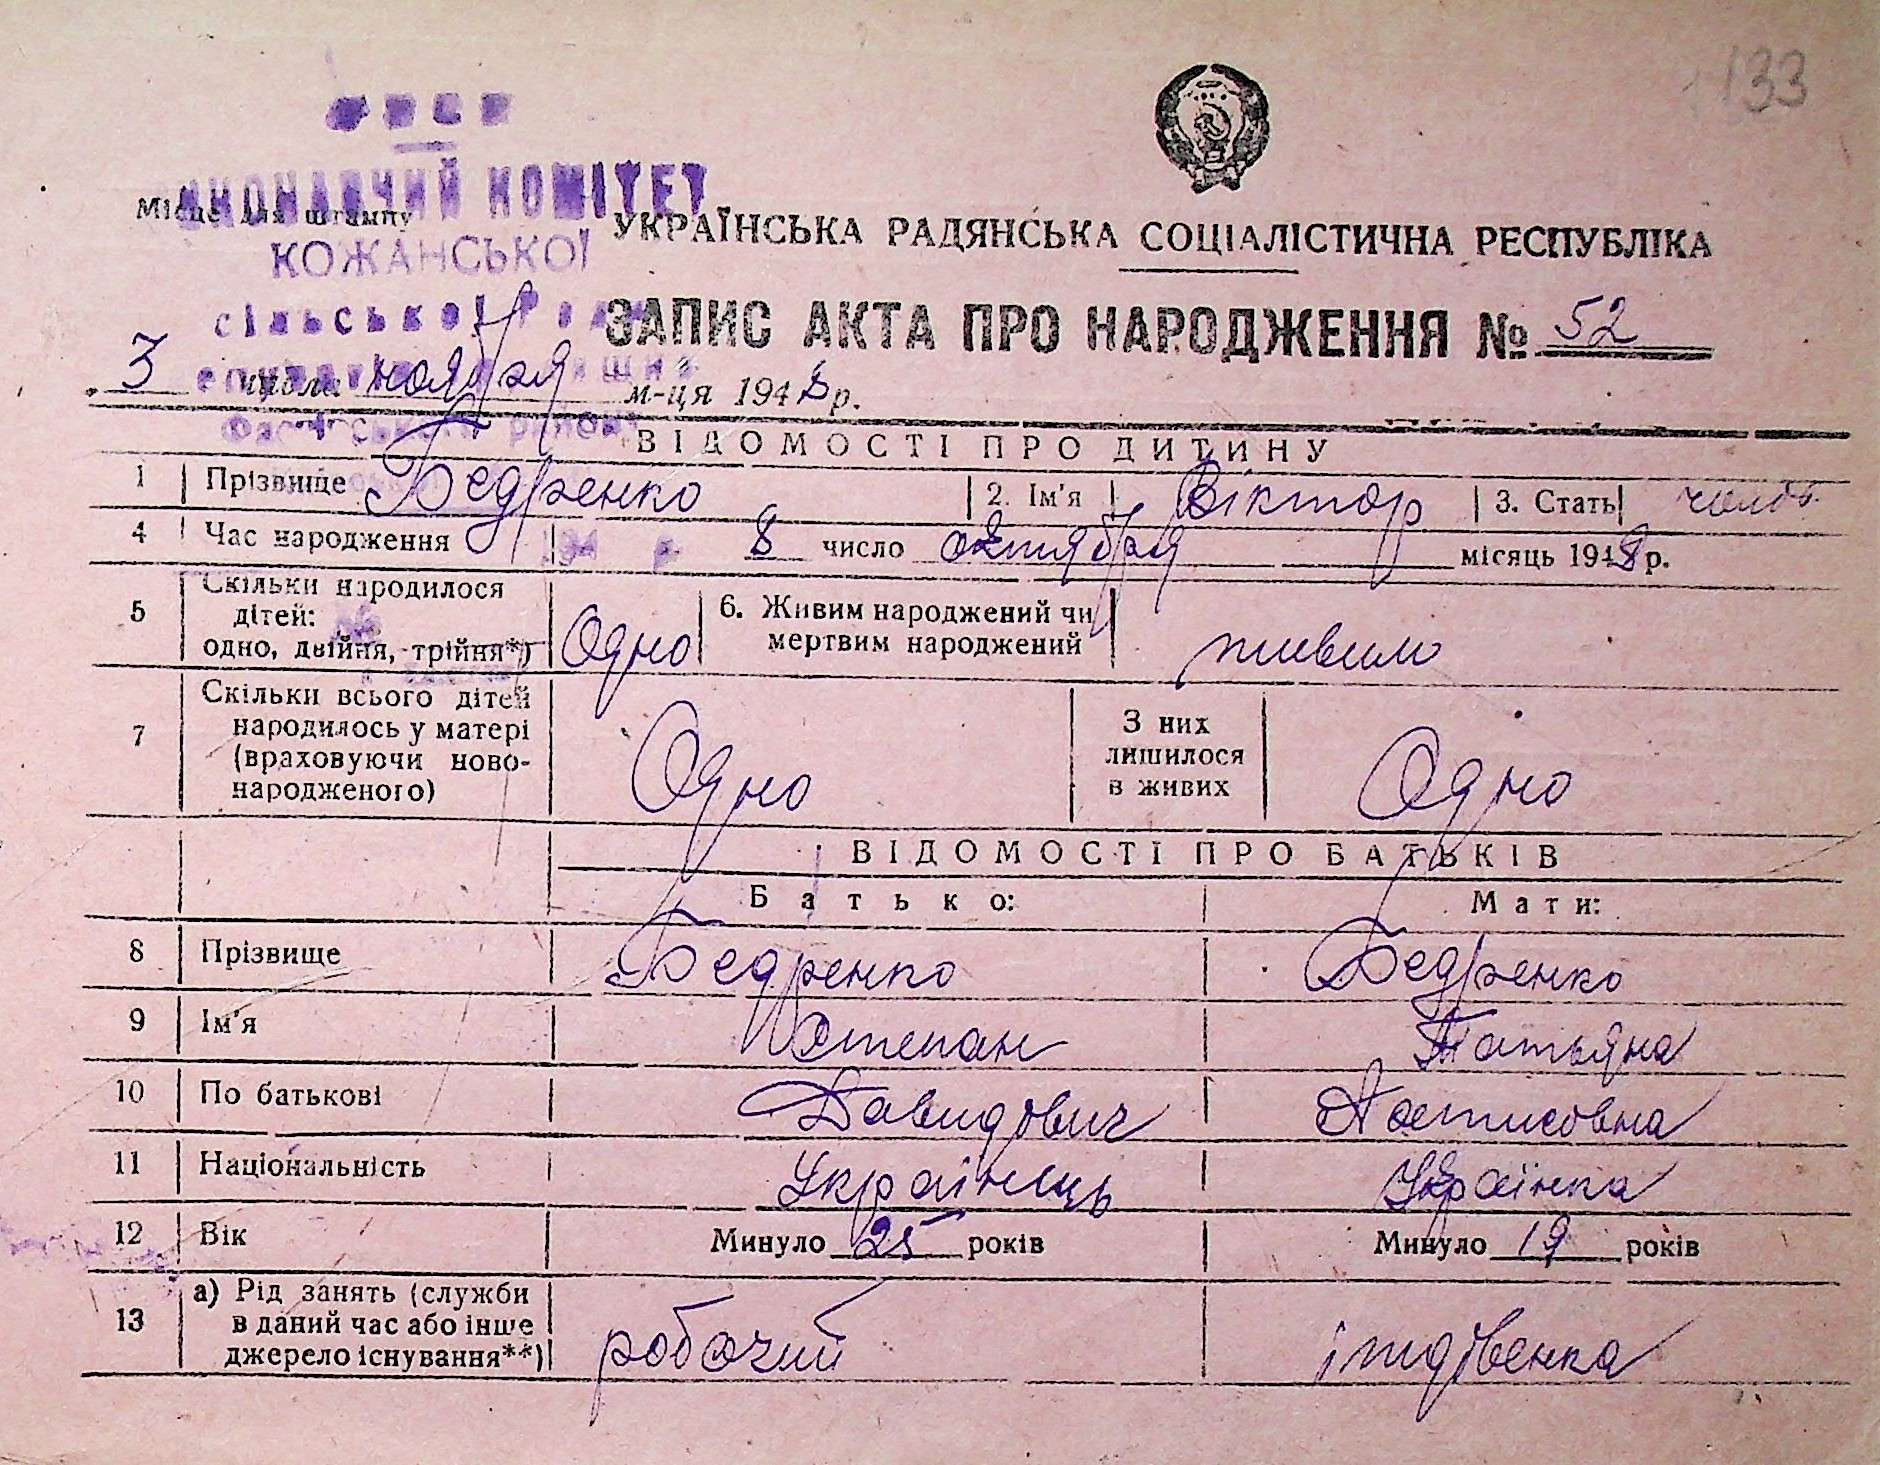 133
УРСР
ВИКОНАВЧИЙ КОМІТЕТ
Місце для штампу
КОЖАНСЬКОЇ
УКРАЇНСЬКА РАДЯНСЬКА СОЦІАЛІСТИЧНА РЕСПУБЛІКА
сільської Ради
ЗАПИС АКТА ПРО НАРОДЖЕННЯ № 52
3 числа ноября м-ця 1948 р.
Фастівського району
ВІДОМОСТІ ПРО ДИТИНУ
1 Прізвище Бедренко 2. Ім'я Віктор 3. Стать
4 Час народження 8 число октября місяць 1948 р.
5 Скільки народилося дітей: одно, двійня, трійня*) Одно 6. Живим народжений чи мертвим народжений живим
7 Скільки всього дітей народилось у матері (враховуючи новонародженого) Одно З них лишилося в живих Одно
ВІДОМОСТІ ПРО БАТЬКІВ
Батько: Мати:
8 Прізвище Бедренко Бедренко
9 Ім'я Степан Татьяна
10 По батькові Давидович
11 Національність Українець Українка
12 Вік Минуло 25 років Минуло 19 років
13 а) Рід занять (служби в даний час або інше джерело існування**) робочий